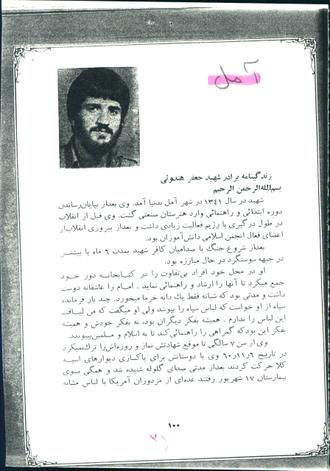 آمل
زندگینامه برادر شهید جعفر هندوئی
بسم‌الله‌الرحمن الرحیم
شهید در سال ۱۳٤۱ در شهر آمل بدنیا آمد. وی بعداز بپایان‌رساندن
دوره ابتدائی و راهنمائی وارد هنرستان صنعتی گشت. وی قبل از انقلاب
در طول درگیری با رژیم فعالیت زیادی داشت و بعداز پیروزی انقلاب‌از
اعضای فعال انجمن اسلامی دانش‌آموزان بود.
بعداز شروع جنگ با صدامیان کافر شهید بمدت ۶ ماه یا بیشتر
در جبهه سوسنگرد در حال مبارزه بود.
او در محل خود افراد بی‌تفاوت را در کتابخانه دور خود
جمع میکرد تا آنها را ارشاد و راهنمائی نماید. امام را عاشقانه دوست
داشت و مدتی بود که شبانه فقط یك دانه خرما میخورد. چند بار فرمانده
سپاه از او خواست که لباس سپاه را بپوشد ولی او میگفت که من لیاقت
این لباس را ندارم. همیشه بفکر دیگران بود، نه بفکر خودش و همیشه
بفکر این بود که گمراهی را راهنمائی کند تا به اسلام و مسلمین بپیوندد.
وی از سن ۷ سالگی تا موقع شهادتش نماز و روزه‌اش را ترك نمیکرد
در تاریخ ۶۰/۱۱/۶ وی با دوستانش برای پاکسازی دیوارهای اسپه
کلا حرکت کردند بعداز مدتی صدای گلوله شنیده شد و همگی سوی
بیمارستان ۱۷ شهریور رفتند عده‌ای از مزدوران آمریکا با لباس مشابه
۱۰۰